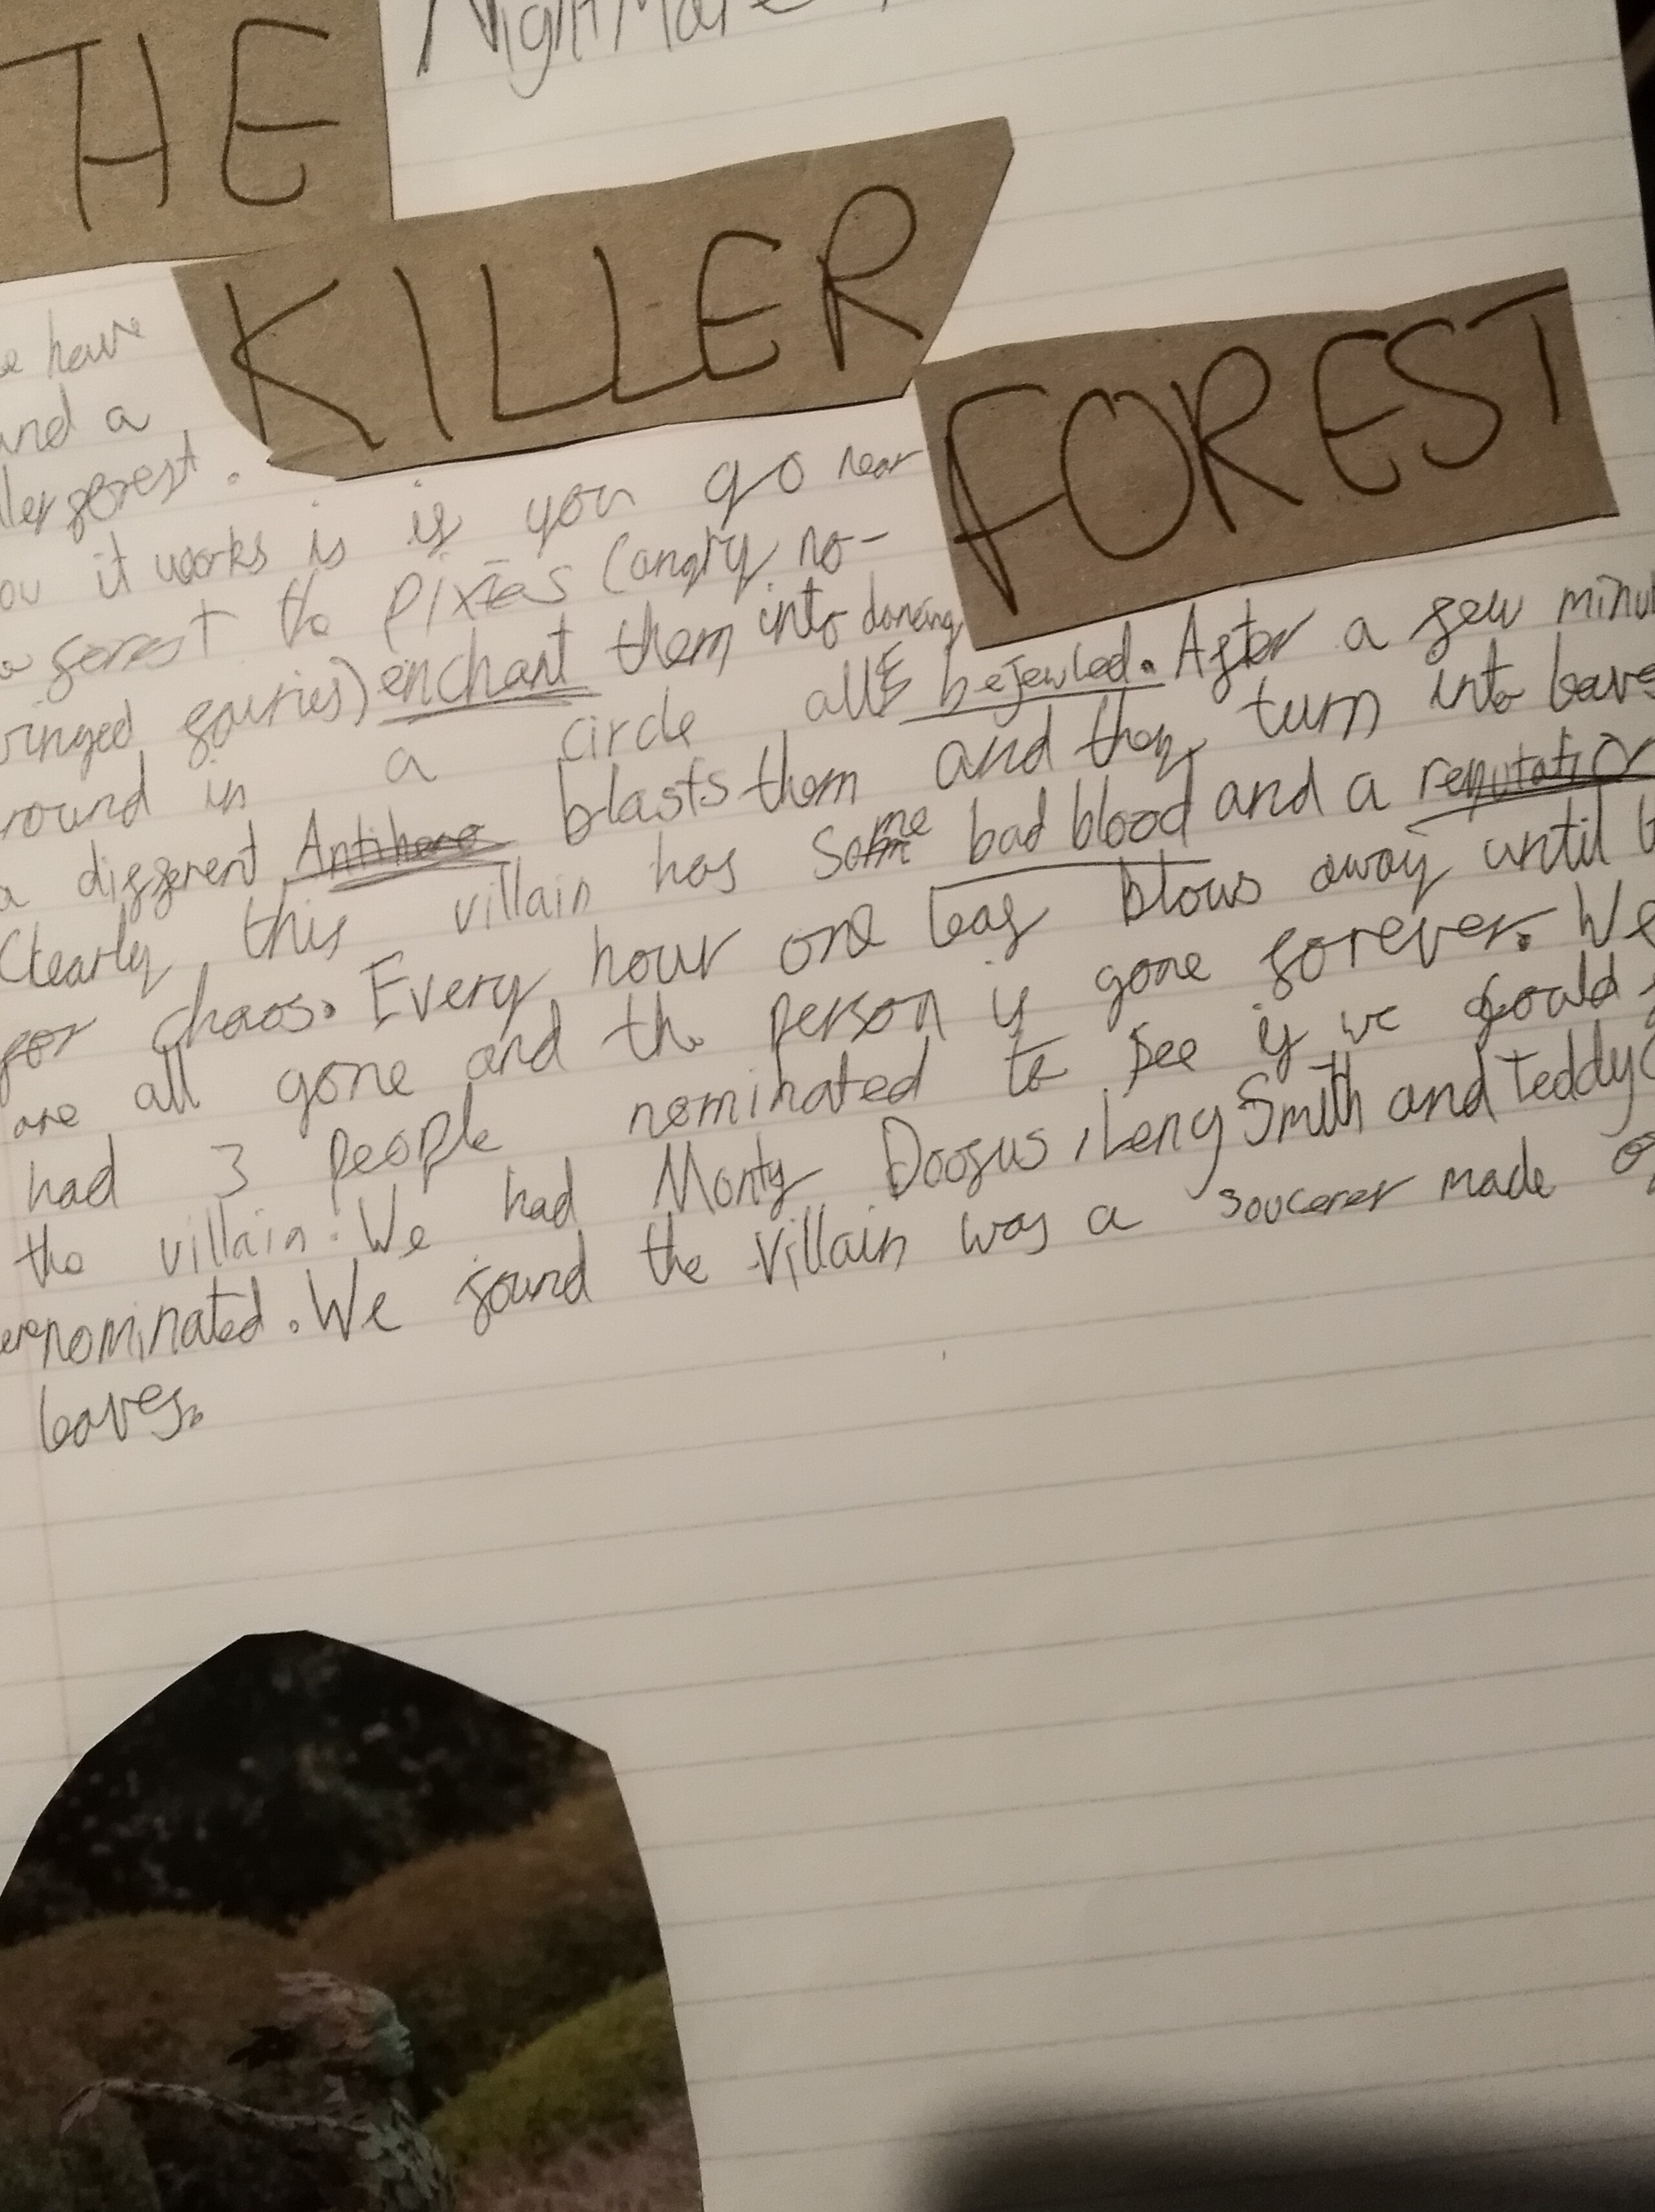 NightMare
THE
KILLER
FOREST
have
and a
forest.
it works is if you go near
forest the Pixies (angry no-
winged fairies) enchant them into dancing
round in a circle all bejewled. After a few
a different Antihero blasts them and they turn into
Clearly this villain has some bad blood and a reputation
for chaos. Every hour one leaf blows away until
are all gone and the person is gone forever. We
had 3 people nominated to see if we could
the villain. We had Monty Doofus, Leny Smith and Teddy
nominated. We found the Villain was a soucerer made of
leaves.